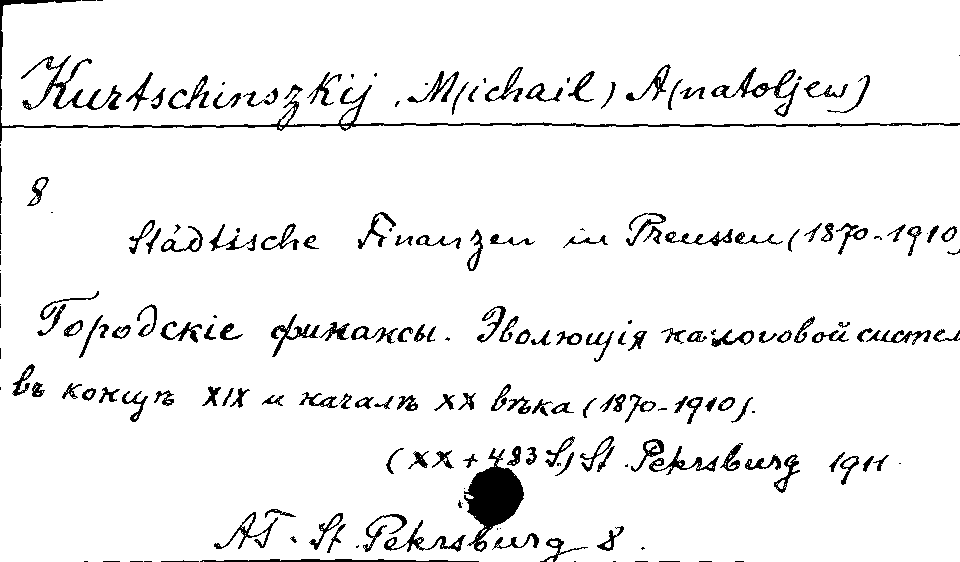 Kurtschinszkij, M(ichail) A(natoljew)
8
Städtische Finanzen in Preussen (1870-1910)
Городскіе финансы. Эволюція налоговой систем
въ концѣ XIX и началѣ XX вѣка (1870-1910).
(XX + 483 S.) St. Petersburg 1911.
AT. St. Petersburg 8.